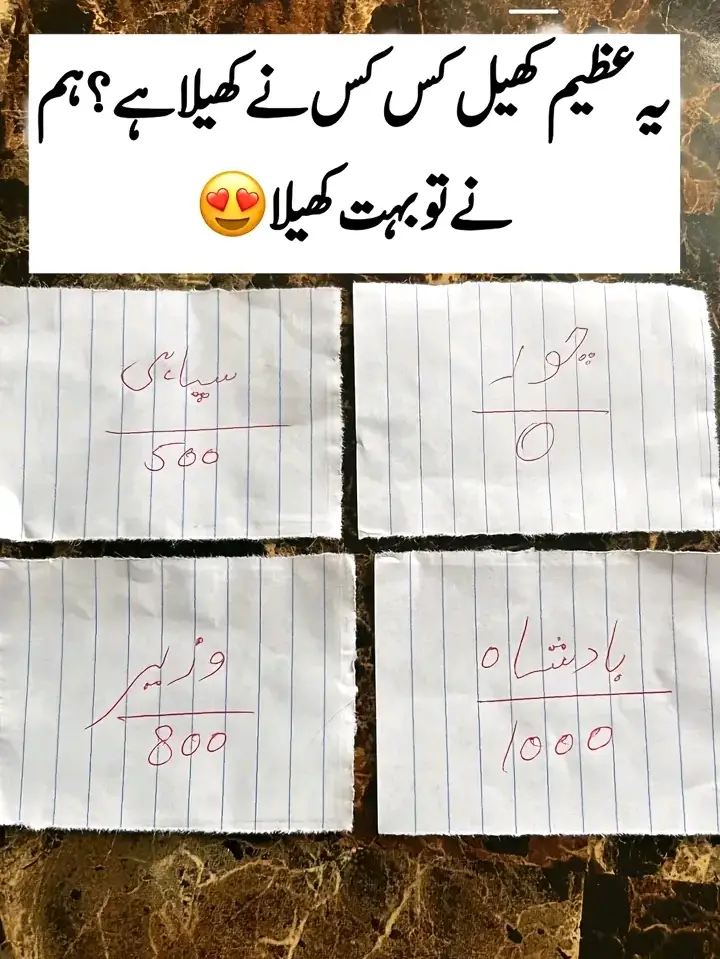 یہ عظیم کھیل کس کس نے کھیلا ہے؟ ہم
نے تو بہت کھیلا😍
چور
0
سپاہی
500
بادشاہ
1000
وزیر
800